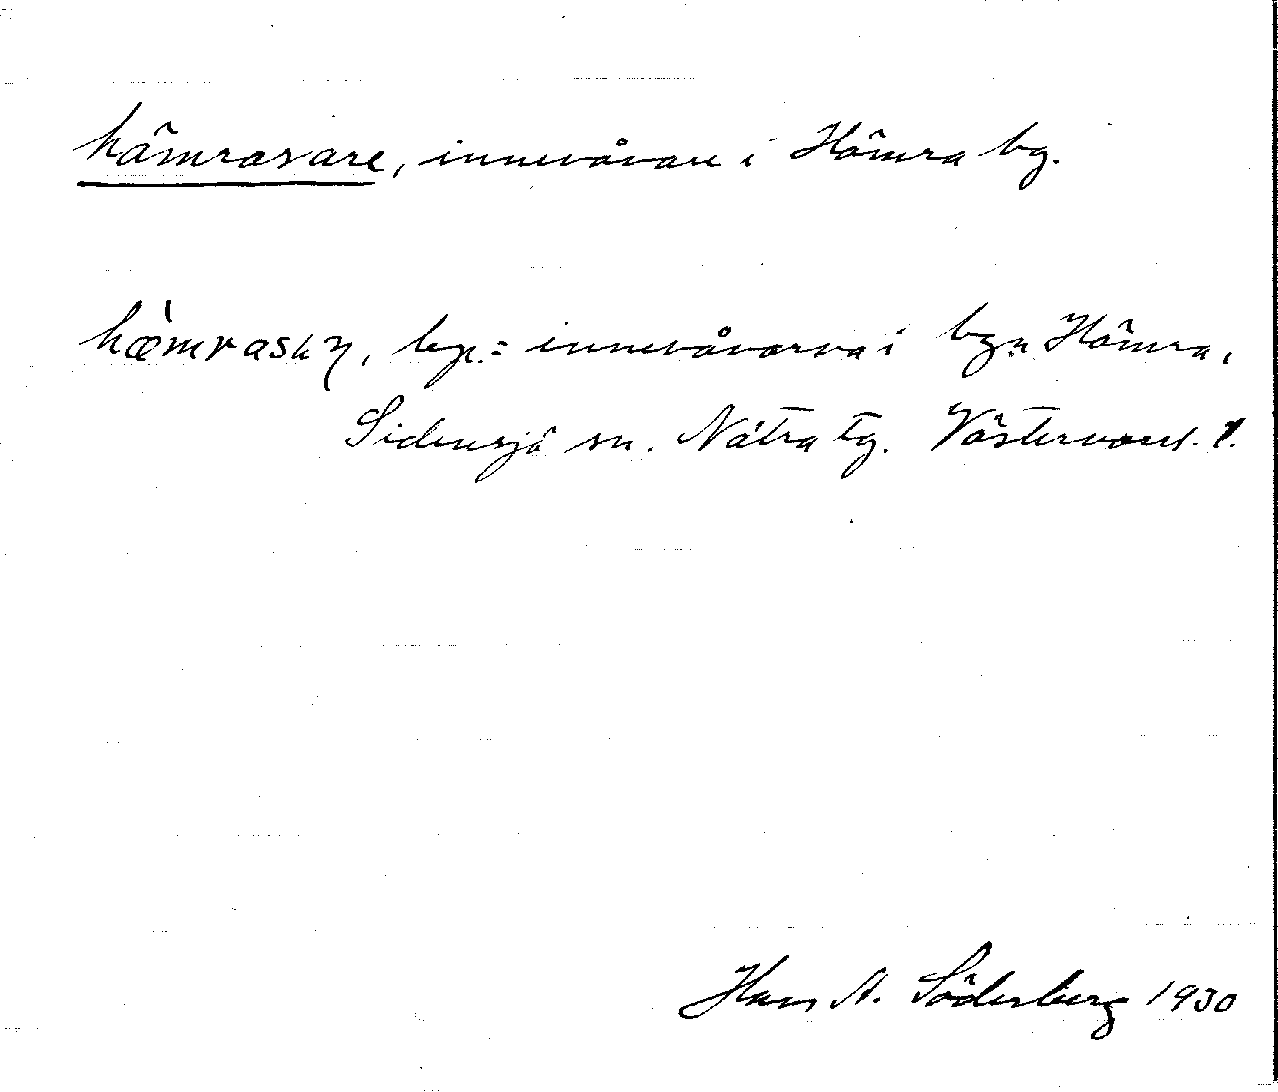 hämrasare, innevånare i Hämra bg.
hæ̀mrasan, bp.= innevånarna i bgn Hämra,
Sidensjö sn. Nätra tg. Västernorrl. l.
Hans A. Söderberg 1930